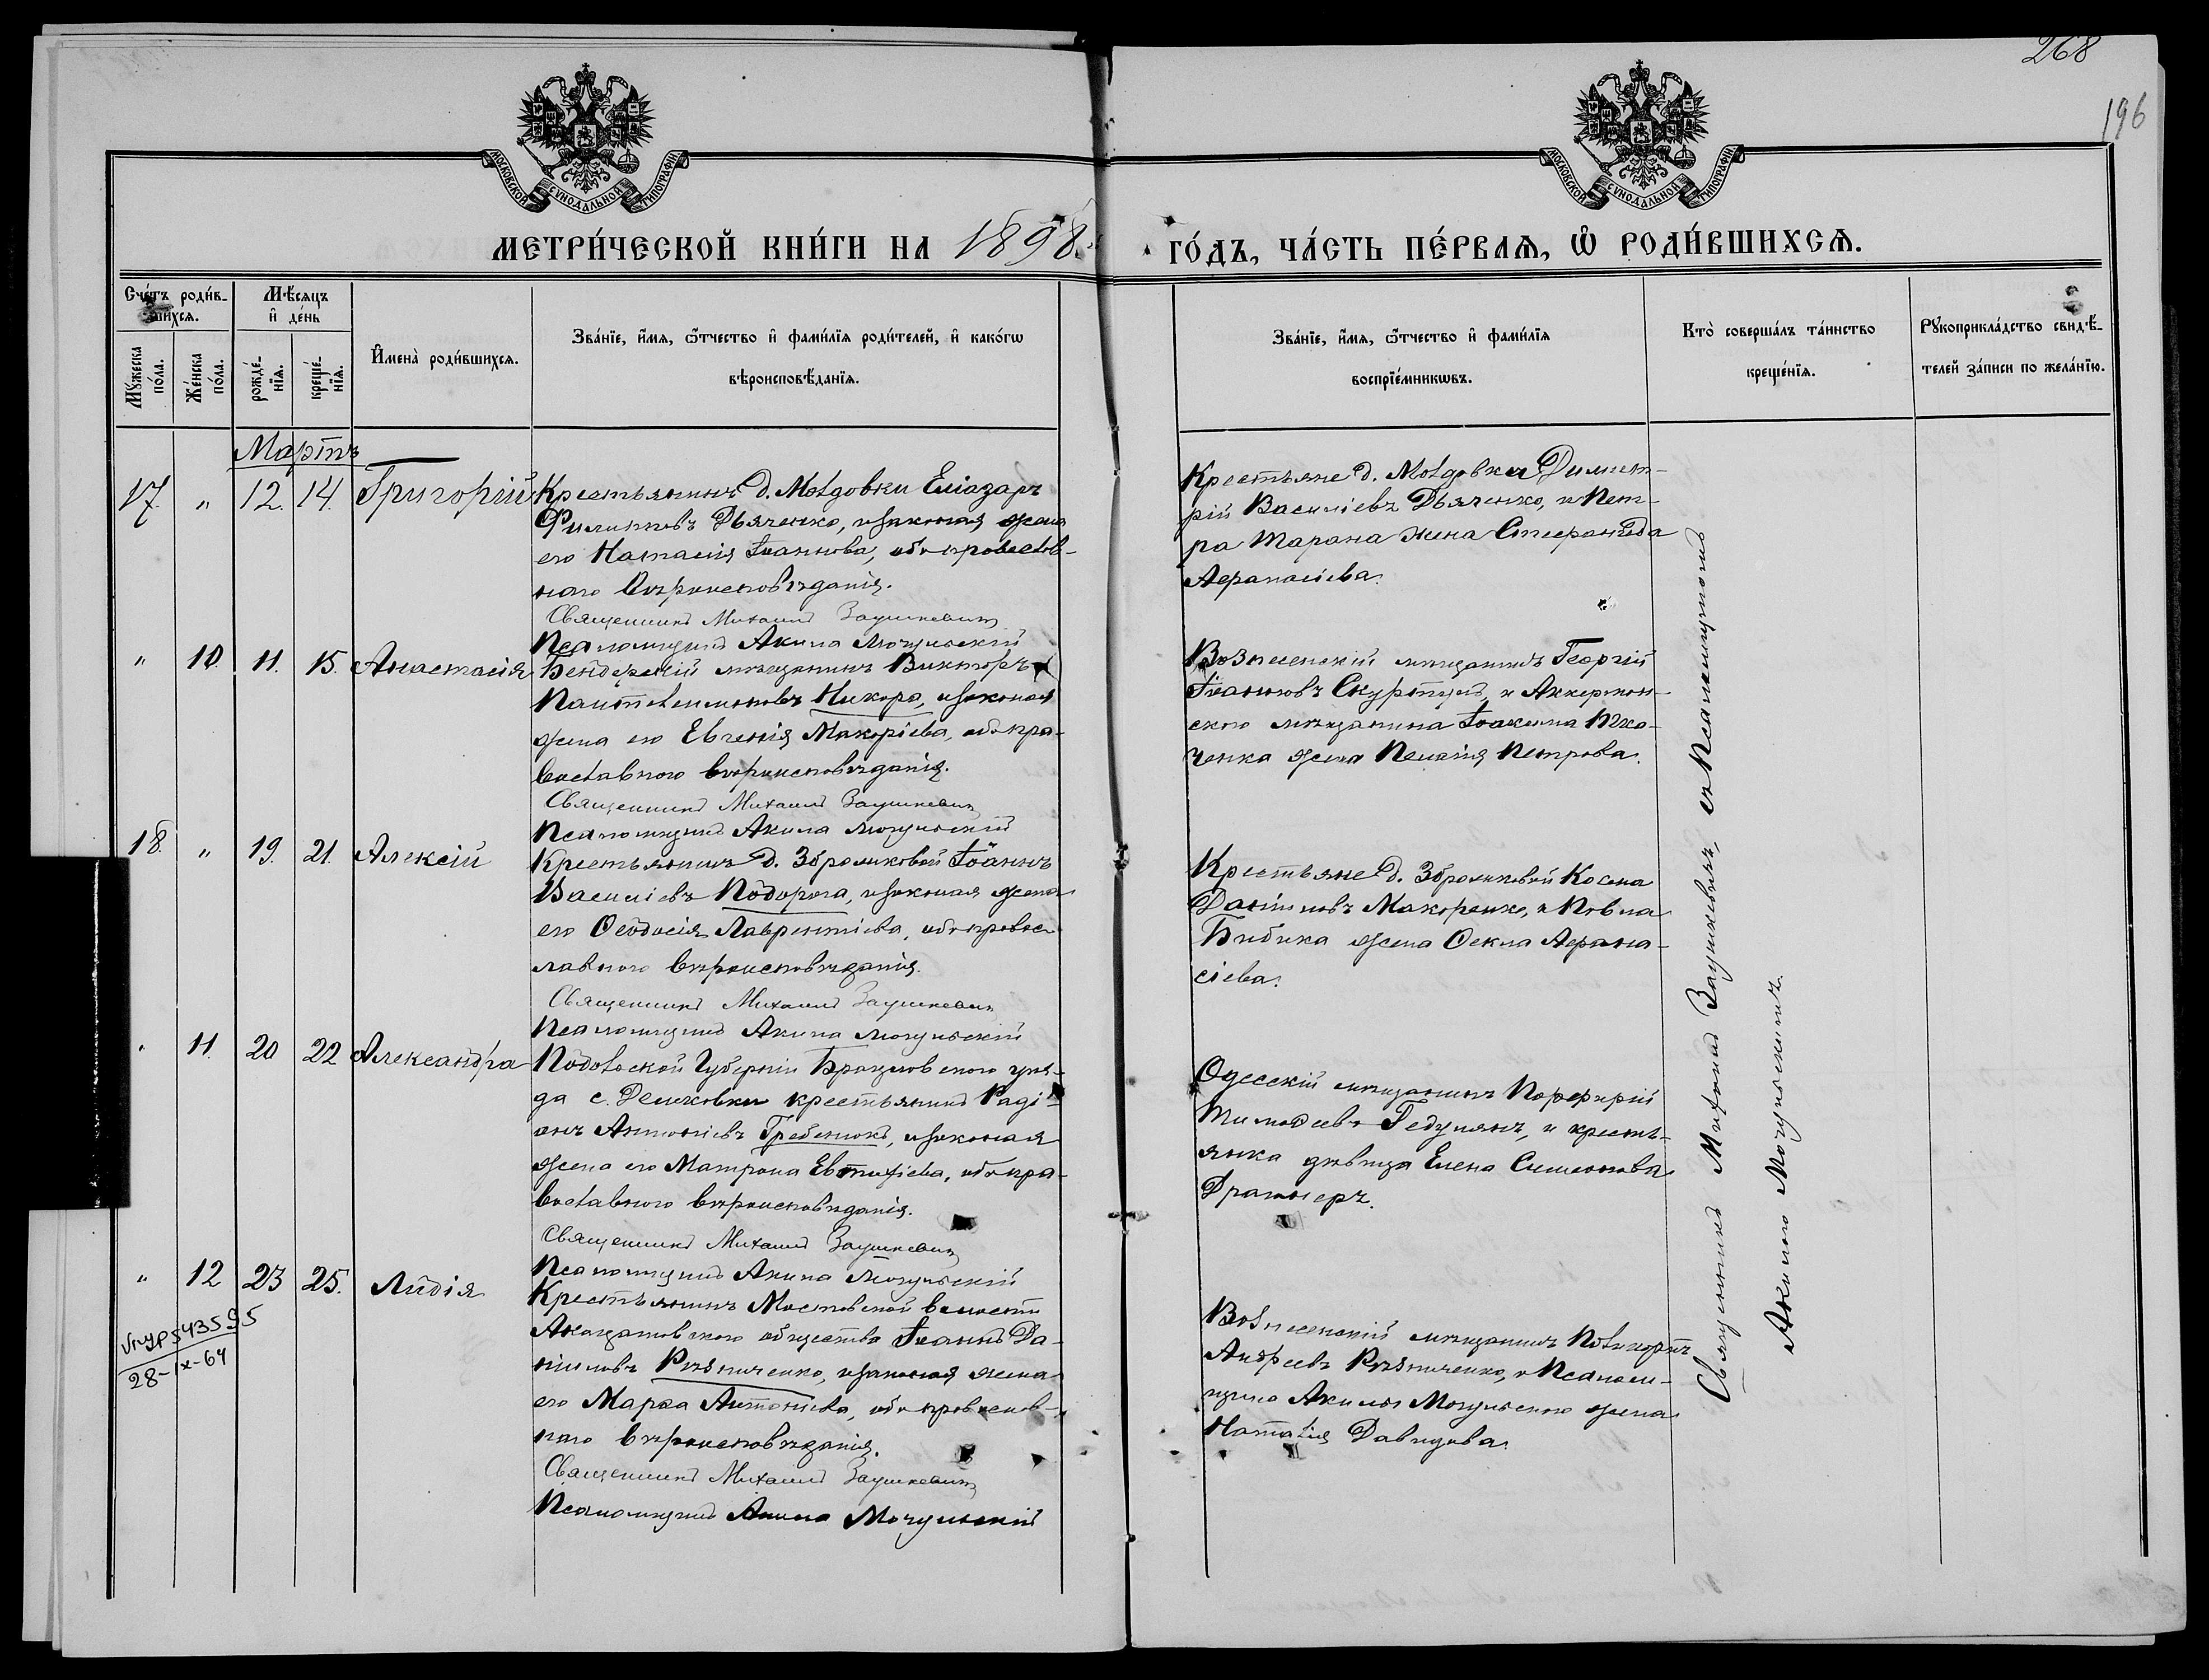 268
196
МОСКОВСКОЙ СѴНОДАЛЬНОЙ ТИПОГРАФІИ
МОСКОВСКОЙ СѴНОДАЛЬНОЙ ТИПОГРАФІИ
МЕТРИ́ЧЕСКОЙ КНИ́ГИ НА 1898
ГО́ДЪ, ЧА́СТЬ ПЕ́РВАѦ, Ѡ҆ РОДИ́ВШИХСѦ.
Сче́тъ роди́в-
шихсѧ.
Мꙋ́жеска по́ла.
Же́нска по́ла.
Мѣ́сяцъ и҆ де́нь
рожде́-нїѧ.
креще́-нїѧ.
И҆мена̀ роди́вшихсѧ.
Зва́нїе, и҆́мѧ, ѻ҆́тчество и҆ фами́лїѧ роди́телей, и҆ како́гѡ
вѣроисповѣ́данїѧ.
Зва́нїе, и҆́мѧ, ѻ҆́тчество и҆ фами́лїѧ
воспрїе́мникѡвъ.
Кто̀ соверша́лъ та́инство
креще́нїѧ.
Рꙋкоприкла́дство свидѣ́-
телей за́писи по жела́нїю.
Мартъ
17. " 12. 14. Григорій
Крестьянинъ д. Молдовки Еліазаръ
Филипповъ Дьяченко, и законная жена
его Наталія Іоаннова, оба православ-
наго вѣроисповѣданія.
Священникъ Михаилъ Заушкевичъ
Псаломщикъ Акила Мочульскій
Крестьяне д. Молдовки Димит-
рій Василіевъ Дьяченко, и Пет-
ра Тарана жена Стефанида
Афанасіева.
" 10. 11. 15. Анастасія
Бендерскій мѣщанинъ Викторъ
Пантелеимоновъ Никора, и законная
жена его Евгенія Макаріева, оба пра-
вославного вѣроисповѣданія.
Священникъ Михаилъ Заушкевичъ
Псаломщикъ Акила Мочульскій
Вознесенскій мѣщанинъ Георгій
Іоанновъ Скуртулъ, и Аккерман-
ского мѣщанина Іоакима Тка-
ченка жена Пелагія Петрова.
18. " 19. 21. Алексій
Крестьянинъ д. Збрашковой Іоаннъ
Василіевъ Подорога, и законная жена
его Ѳеодосія Лаврентіева, оба правос-
лавного вѣроисповѣданія.
Священникъ Михаилъ Заушкевичъ
Псаломщикъ Акила Мочульскій
Крестьяне д. Збрашковой Косма
Даніиловъ Макаренко, и Павла
Бибика жена Ѳекла Афана-
сіева.
" 11. 20 22 Александра
Подольской Губерніи Брацлавского уѣз-
да с. крестьянинъ Раді-
онъ Антоніевъ Гребенюкъ, и законная
жена его Матрона Евтихіева, оба пра-
вославного вѣроисповѣданія.
Священникъ Михаилъ Заушкевичъ
Псаломщикъ Акила Мочульскій
Одесскій мѣщанинъ Порфирій
Тимофеевъ и кресть-
янка дѣвица Елена Симеонова
" 12 23 25. Лидія
Крестьянинъ Мостовской волости
Акацатовского общества Іоаннъ Да-
ніиловъ Рѣзниченко, и законная жена
его Марѳа Антоніева, оба православ-
наго вѣроисповѣданія.
Священникъ Михаилъ Заушкевичъ
Псаломщикъ Акила Мочульскій
Вознесенскій мѣщанинъ Поликарпъ
Андреевъ Рѣзниченко, и Псалом-
щика Акилы Мочульского жена
Наталія Давидова.
543595
28-IX-64
Священникъ Михаилъ Заушкевичъ, съ Псаломщикомъ
Акилою Мочульскимъ.